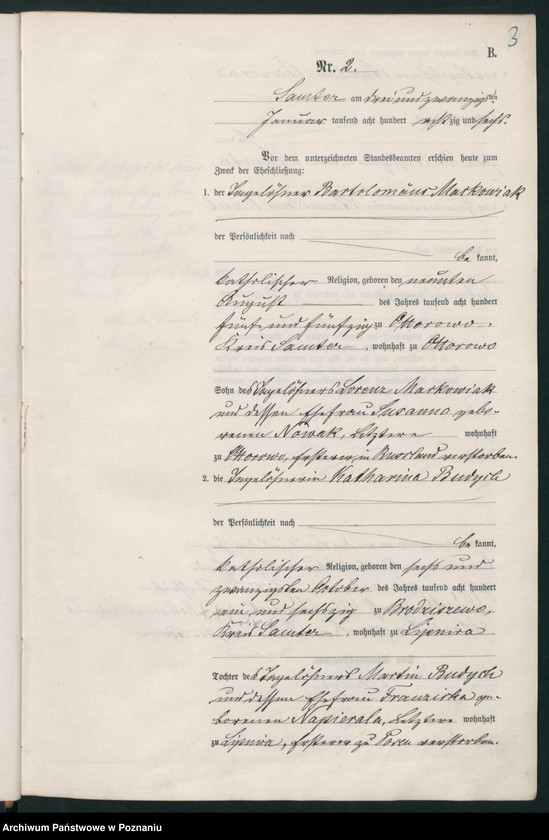 3
B.
Nr. 2.
Samter am drei und zwanzigsten
Januar tausend acht hundert achtzig und sechs.
Vor dem unterzeichneten Standesbeamten erschien heute zum
Zweck der Eheschließung:
1. der Tagelöhner Bartolomäus Markowiak
der Persönlichkeit nach
be kannt,
katholischer Religion, geboren den neunten
August des Jahres tausend acht hundert
fünf und fünfzig zu Ottorowo,
Kreis Samter, wohnhaft zu Ottorowo
Sohn des Tagelöhners Lorenz Markowiak
und dessen Ehefrau Susanna gebo-
renen Nowak, Letztere wohnhaft
zu Ottorowo, Ersterer in Russland verstorben.
2. die Tagelöhnerin Katharina Budych
der Persönlichkeit nach
be kannt,
katholischer Religion, geboren den sechs und
zwanzigsten October des Jahres tausend acht hundert
ein und sechszig zu Brodziszewo,
Kreis Samter, wohnhaft zu Lipnica
Tochter des Tagelöhners Martin Budych
und dessen Ehefrau Franziska ge-
borenen Napierala, Letztere wohnhaft
zu Lipnica, Ersterer zu verstorben.
Archiwum Państwowe w Poznaniu